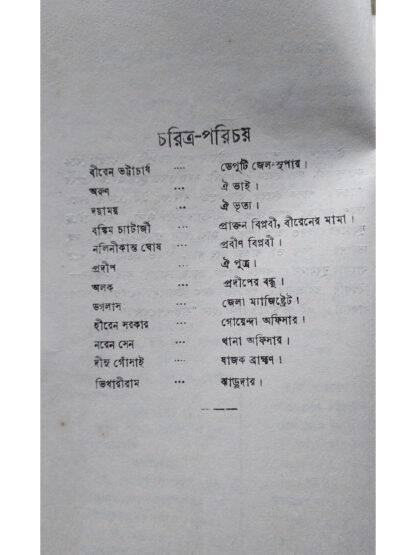 চরিত্র-পরিচয়
বীরেন ভট্টাচার্য .... ডেপুটি জেল-সুপার।
অরুণ ... ঐ ভাই।
দয়াময় ... ঐ ভৃত্য।
বঙ্কিম চ্যাটার্জী .... প্রাক্তন বিপ্লবী, বীরেনের মামা।
নলিনীকান্ত ঘোষ .... প্রবীণ বিপ্লবী।
প্রদীপ ... ঐ পুত্র।
অলক ... প্রদীপের বন্ধু।
ডগলাস ... জেলা ম্যাজিষ্ট্রেট।
হীরেন সরকার .... গোয়েন্দা অফিসার।
নরেন সেন ... থানা অফিসার।
দীনু গোঁসাই ... যাজক ব্রাহ্মণ।
ভিখারীরাম ... ঝাড়ুদার।